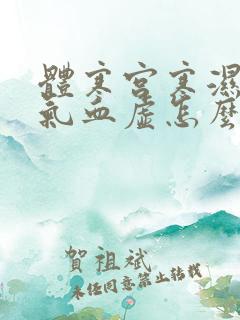 體寒宮寒濕
氣血虛怎麼
賀祖斌
未經同意禁止轉載